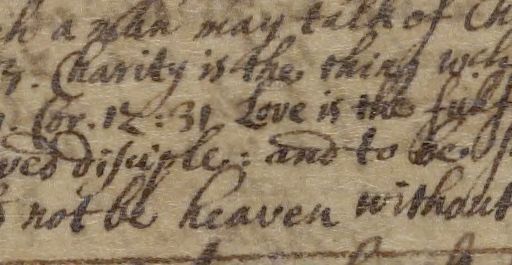 h a man may talk of Ch
3. Charity is the thing wch
1. Cor. 12:31 Love is the fulf
ved disciple: and to be
not be heaven without